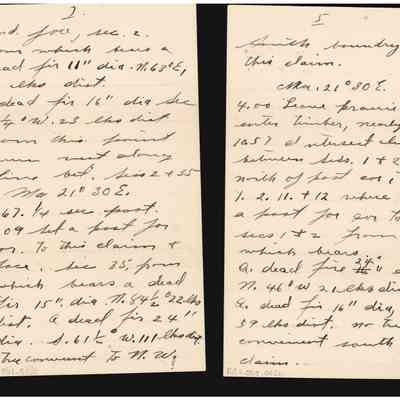 3.
and for, sec. 2.
from which bears a
dead fir 11" dia. N. 63° E,
lks dist.
dead fir 16" dia sec
¼° W. 23 lks dist
from this point
run west along
line bet. secs 2 & 35
Ma 21° 30 E.
67. ¼ sec post.
09 set a post for
cor. To this claim &
sec 35, from
which bears a dead
fir 15" dia N. 84½° 22 lks
dist. A dead fir 24"
dia. S. 61½° W. 111 lks dis
tree convenent to N. W.
5
south boundry
this claim.
Ma. 21° 30 E.
4.00 Leave prairie
enter timber, nearly
10.57 intersect
between secs. 1 & 2
north of post cor
1. 2. 11. & 12 where
a post for cor to
secs 1 & 2 from
which bears
A. dead fire 24"
N. 46° W 21 lks dis
A. dead fir 16" dia,
39 lks dist. no tree
convenent south
claim.